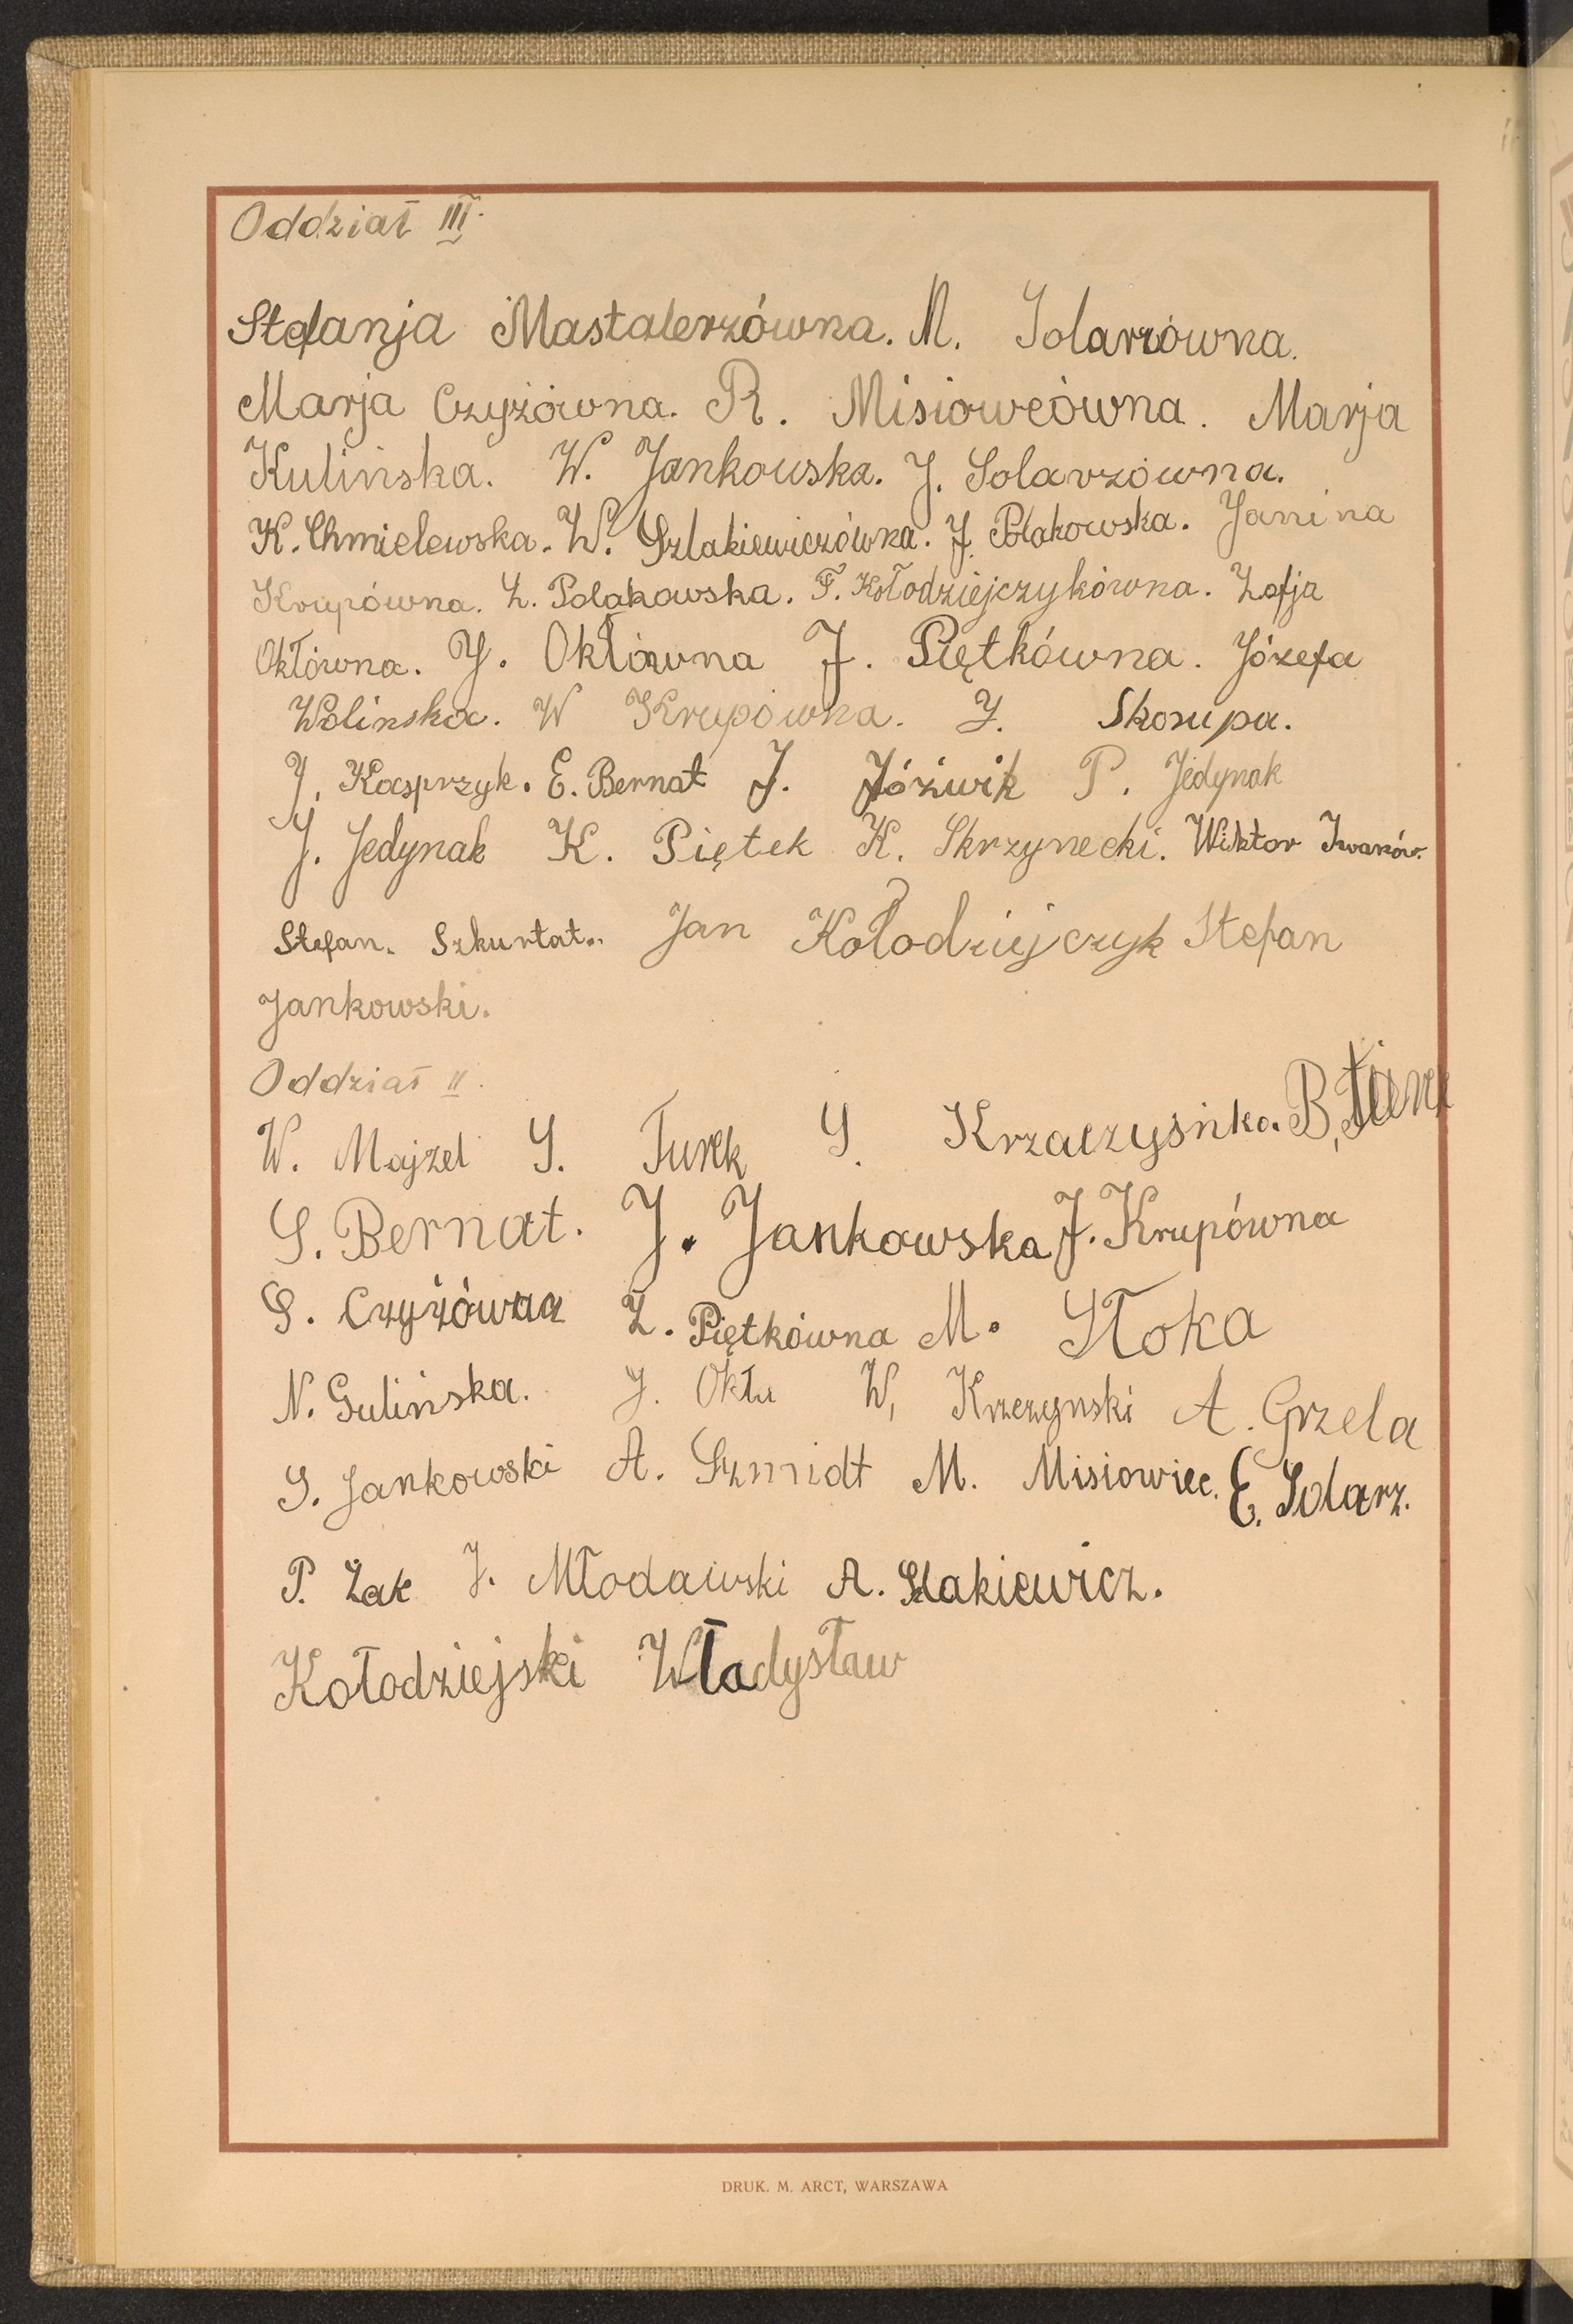 Oddział III.
Stefanja Mastalerzówna. M. Solarzówna.
Marja Czyżówna. R. Misiowcówna. Marja
Kulińska. W. Jankowska. J. Solarzówna.
K. Chmielewska. W. Szlakiewiczówna. J. Polakowska. Janina
Krupówna. Z. Polakowska. F. Kołodziejczykówna. Zofja
Októwna. J. Októwna J. Piętkówna. Józefa
Wolinska. W Krupówna. J. Skorupa.
J. Kasprzyk. E. Bernat J. Jóźwik P. Jedynak
J. Jedynak K. Piętek K. Skrzynecki. Wiktor Iwanów.
Stefan. Szkurłat.. Jan Kołodziejczyk Stefan
Jankowski.
Oddział II.
W. Majzel S. Turek S. Krzaczysńka. B,
S. Bernat. J. Jankowska J. Krupówna
S. Czyżówna Z. Piętkówna M. Słoka
N. Gulińska. J. W, Krzezynski A. Grzela
S. Jankowski A. Szmidt M. Misiowiec. E. Solarz.
P. Żak J. Młodawski A. Szlakiewicz.
Kołodziejski Władysław
DRUK. M. ARCT, WARSZAWA